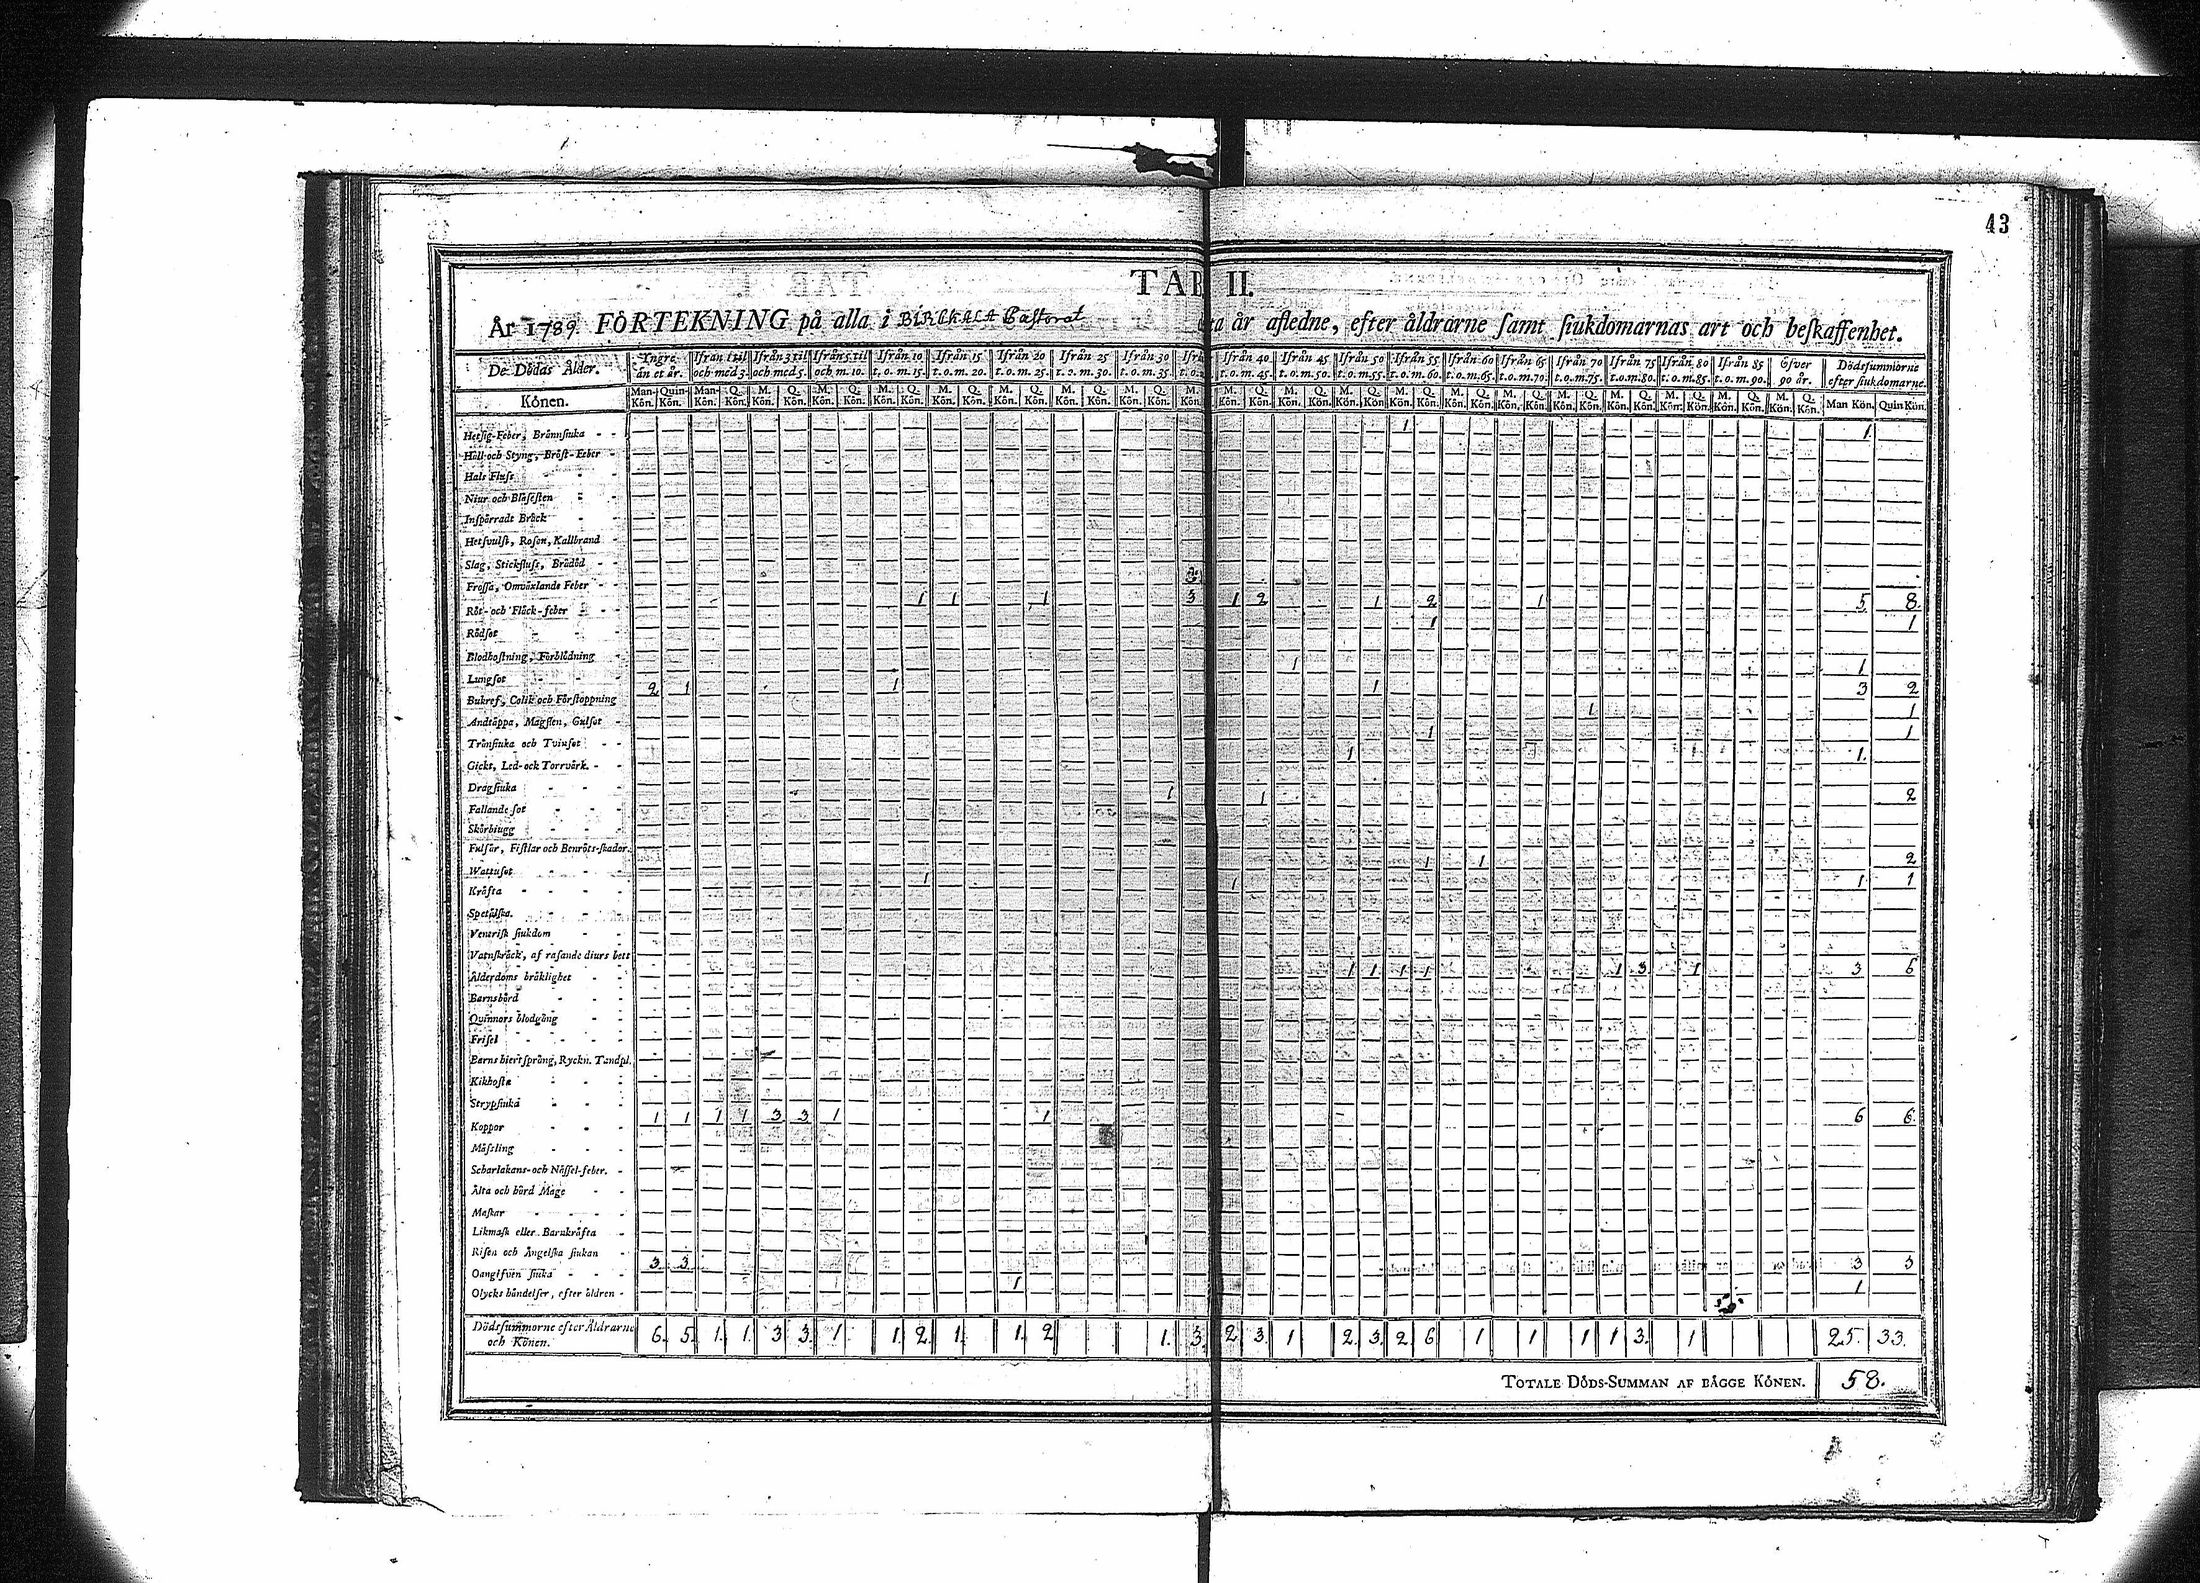 43
TAB II.
År 1789. FÖRTEKNING på alla i BIRCKALA Pastorat år afledne, efter åldrarne samt siukdomarnas art och beskaffenhet.
De Dödas Ålder. Yngre än et år. Ifrån 1 til och med 3. Ifrån 3 til och med 5. Ifrån 5 til och m. 10. Ifrån 10 t. o. m. 15. Ifrån 15 t. o. m. 20. Ifrån 20 t. o. m. 25. Ifrån 25 t. o. m. 30. Ifrån 30 t. o. m. 35. Ifrån 40 t. o. m. 45. Ifrån 45 t. o. m. 50. Ifrån 50 t. o. m. 55. Ifrån 55 t. o. m. 60. Ifrån 60 t. o. m. 65. Ifrån 65 t. o. m. 70. Ifrån 70 t. o. m. 75. Ifrån 75 t. o. m. 80. Ifrån 80 t. o. m. 85. Ifrån 85 t. o. m. 90. Öfver 90 år. Dödssummorne efter siukdomarne.
Könen. Man-Kön. Quin-Kön. Man-Kön. Q. Kön. M. Kön. Q. Kön. M. Kön. Q. Kön. M. Kön. Q. Kön. M. Kön. Q. Kön. M. Kön. Q. Kön. M. Kön. Q. Kön. M. Kön. Q. Kön. M. Kön. Q. Kön. M. Kön. Q. Kön. M. Kön. Q. Kön. M. Kön. Q. Kön. M. Kön. Q. Kön. M. Kön. Q. Kön. M. Kön. Q. Kön. M. Kön. Q. Kön. M. Kön. Q. Kön. M. Kön. Q. Kön. M. Kön. Q. Kön. Man Kön. Quin Kön.
Hetsig-Feber, Brännsiuka 1 1
Håll och Styng, Bröst-Feber
Hals Fluss
Niur och Blåsesten
Inspärradt Bråck
Hetsvulst, Rosen, Kallbrand
Slag, Stickfluss, Brådöd
Frossa, Omväxlande Feber
Röt- och Fläck-feber 1 1 1 3 1 2 1 2 1 5 8
Rödsot 1 1
Blodhostning, Förblödning
Lungsot 1 1
Bukref, Colik och Förstoppning 2 1 1 1 3 2
Andtäppa, Magsten, Gulsot 1 1
Trånsiuka och Tvinsot 1 1
Gickt, Led- och Torrvärk 1 1
Dragsiuka
Fallande sot 1 1 2
Skörbiugg
Fulsår, Fistlar och Benröts-skador
Wattusot 1 1 2
Kräfta 1 1 1 1
Spetälska
Venerisk siukdom
Vatnskräck, af rasande diurs bett
Ålderdoms bräklighet 1 1 1 1 1 3 1 3 6
Barnsbörd
Quinnors blodgång
Frisel
Barns hiertsprång, Ryckn. Tandpl.
Kikhosta
Strypsiuka
Koppor 1 1 1 1 3 3 1 1 6 6
Mässling
Scharlakans- och Nässel-feber
Älta och hård Mage
Maskar
Likmask eller Barnkräfta
Risen och Ängelska siukan
Oangifven siuka 3 3 3 3
Olycks händelser, efter åldren 1 1
Dödssummorne efter Åldrarne och Könen. 6. 5. 1. 1. 3 3. 1 1. 2. 1. 1. 2 1. 3. 2. 3. 1 2. 3. 2 6 1 1 1 1 3. 1 25. 33.
TOTALE DÖDS-SUMMAN AF BÅGGE KÖNEN. 58.